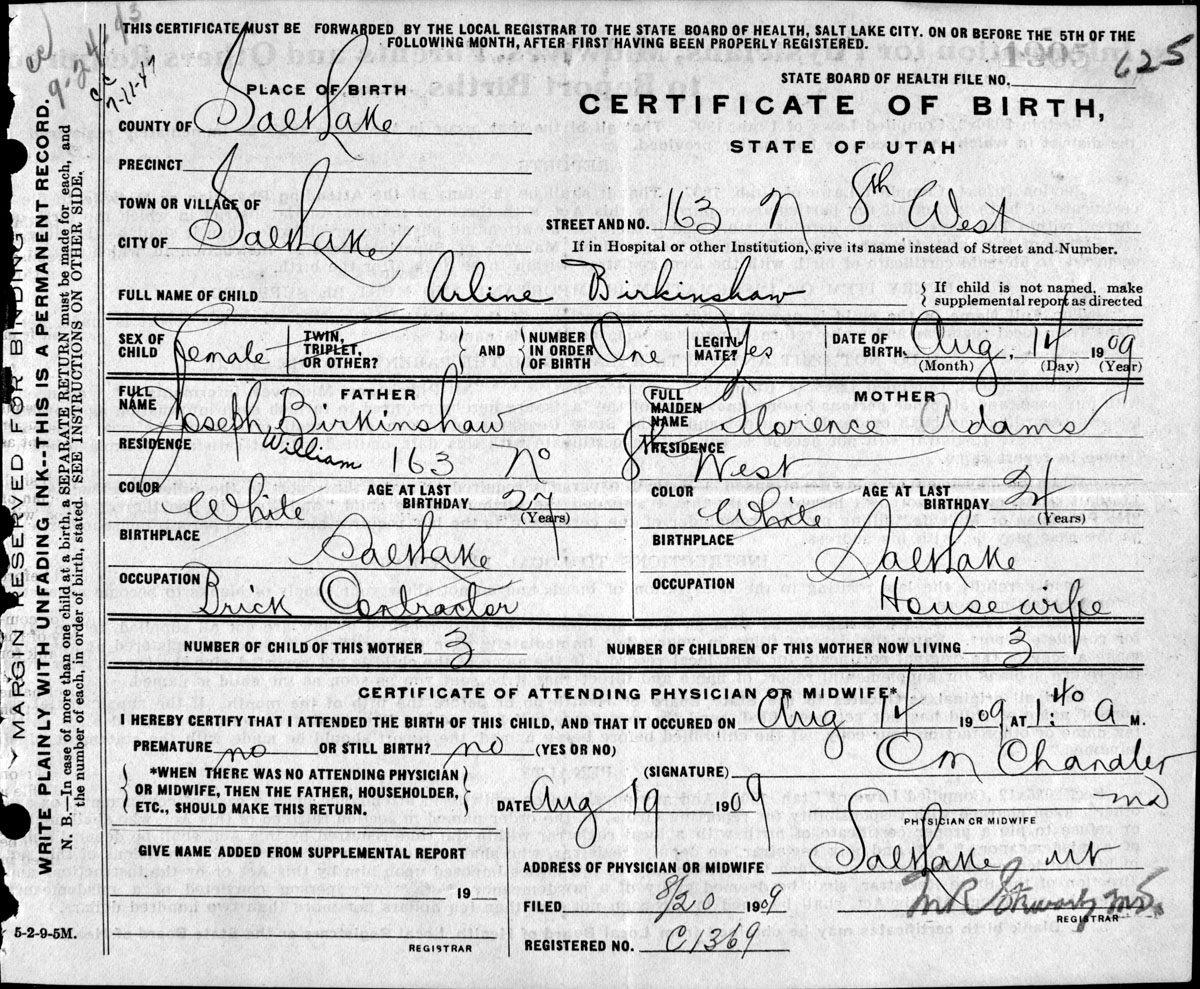 THIS CERTIFICATE MUST BE FORWARDED BY THE LOCAL REGISTRAR TO THE STATE BOARD OF HEALTH, SALT LAKE CITY, ON OR BEFORE THE 5TH OF THE
FOLLOWING MONTH, AFTER FIRST HAVING BEEN PROPERLY REGISTERED.
625
STATE BOARD OF HEALTH FILE NO.
PLACE OF BIRTH
CERTIFICATE OF BIRTH,
STATE OF UTAH
COUNTY OF Salt Lake
PRECINCT
TOWN OR VILLAGE OF
CITY OF Salt Lake
STREET AND NO. 163 N 8th West
If in Hospital or other Institution, give its name instead of Street and Number.
FULL NAME OF CHILD Arline Birkinshaw { If child is not named, make
supplemental report as directed
SEX OF CHILD Female TWIN, TRIPLET, OR OTHER? AND NUMBER IN ORDER OF BIRTH One LEGITIMATE? Yes DATE OF BIRTH, Aug. 14 1909
(Month) (Day) (Year)
FATHER
FULL NAME Joseph Birkinshaw
William
MOTHER
FULL MAIDEN NAME Florence Adams
RESIDENCE 163 No 8th West
RESIDENCE
COLOR White AGE AT LAST BIRTHDAY 27 (Years)
COLOR White AGE AT LAST BIRTHDAY (Years)
BIRTHPLACE Salt Lake
BIRTHPLACE Salt Lake
OCCUPATION Brick Contractor
OCCUPATION Housewife
NUMBER OF CHILD OF THIS MOTHER 3 NUMBER OF CHILDREN OF THIS MOTHER NOW LIVING 3
CERTIFICATE OF ATTENDING PHYSICIAN OR MIDWIFE*
I HEREBY CERTIFY THAT I ATTENDED THE BIRTH OF THIS CHILD, AND THAT IT OCCURED ON Aug 14 1909 AT 1:40 A M.
PREMATURE no OR STILL BIRTH? no (YES OR NO)
{ *WHEN THERE WAS NO ATTENDING PHYSICIAN
OR MIDWIFE, THEN THE FATHER, HOUSEHOLDER,
ETC., SHOULD MAKE THIS RETURN. }
(SIGNATURE) O M Chandler
md
DATE Aug 19 1909
PHYSICIAN OR MIDWIFE
GIVE NAME ADDED FROM SUPPLEMENTAL REPORT
ADDRESS OF PHYSICIAN OR MIDWIFE Salt Lake ut
19
FILED 8/20 1909
REGISTRAR
REGISTERED NO. C1369
REGISTRAR
5-2-9-5M.
MARGIN RESERVED FOR BINDING
WRITE PLAINLY WITH UNFADING INK--THIS IS A PERMANENT RECORD.
N. B.—In case of more than one child at a birth, a SEPARATE RETURN must be made for each, and
the number of each, in order of birth, stated. SEE INSTRUCTIONS ON OTHER SIDE.